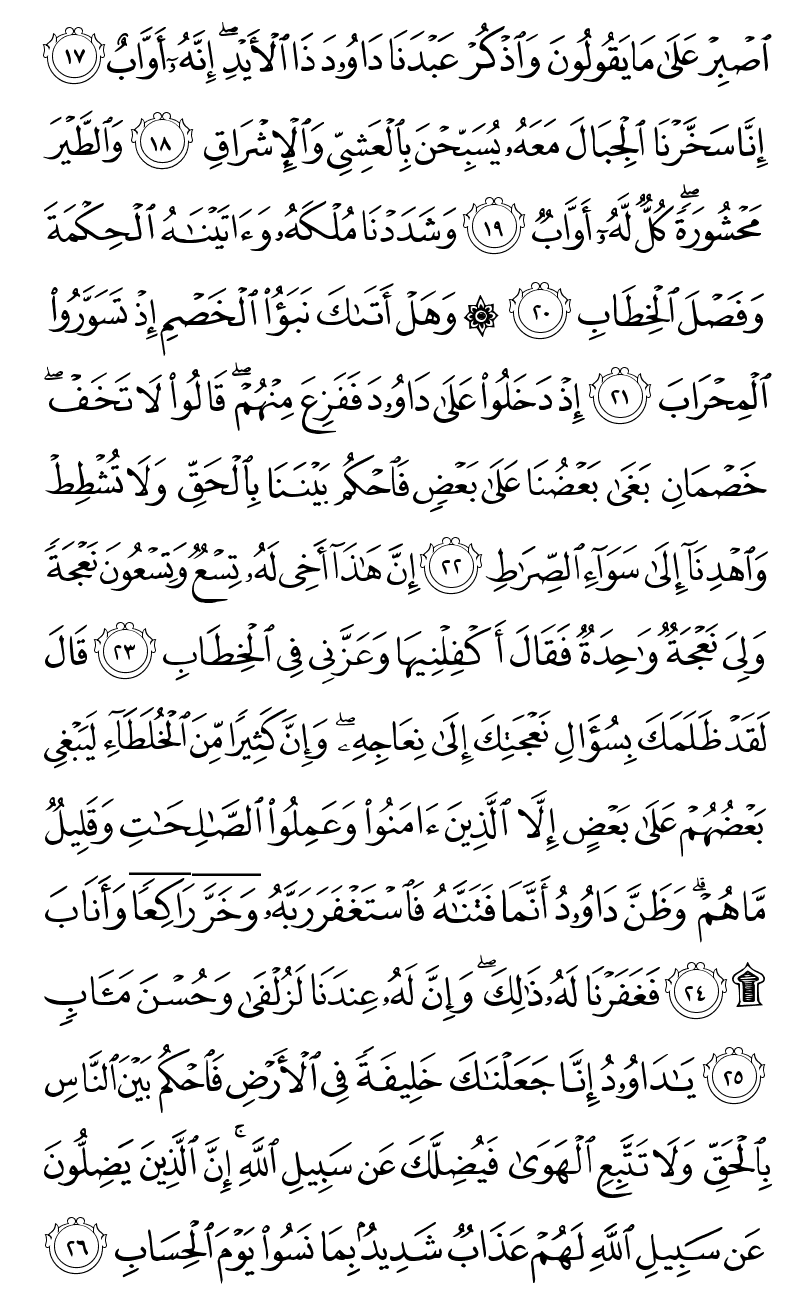 ٱصۡبِرۡ عَلَىٰ مَا يَقُولُونَ وَٱذۡكُرۡ عَبۡدَنَا دَاوُۥدَ ذَا ٱلۡأَيۡدِۖ إِنَّهُۥٓ أَوَّابٌ ١٧
إِنَّا سَخَّرۡنَا ٱلۡجِبَالَ مَعَهُۥ يُسَبِّحۡنَ بِٱلۡعَشِيِّ وَٱلۡإِشۡرَاقِ ١٨ وَٱلطَّيۡرَ
مَحۡشُورَةٗۖ كُلّٞ لَّهُۥٓ أَوَّابٞ ١٩ وَشَدَدۡنَا مُلۡكَهُۥ وَءَاتَيۡنَٰهُ ٱلۡحِكۡمَةَ
وَفَصۡلَ ٱلۡخِطَابِ ٢٠ ۞ وَهَلۡ أَتَىٰكَ نَبَؤُاْ ٱلۡخَصۡمِ إِذۡ تَسَوَّرُواْ
ٱلۡمِحۡرَابَ ٢١ إِذۡ دَخَلُواْ عَلَىٰ دَاوُۥدَ فَفَزِعَ مِنۡهُمۡۖ قَالُواْ لَا تَخَفۡۖ
خَصۡمَانِ بَغَىٰ بَعۡضُنَا عَلَىٰ بَعۡضٖ فَٱحۡكُم بَيۡنَنَا بِٱلۡحَقِّ وَلَا تُشۡطِطۡ
وَٱهۡدِنَآ إِلَىٰ سَوَآءِ ٱلصِّرَٰطِ ٢٢ إِنَّ هَٰذَآ أَخِي لَهُۥ تِسۡعٞ وَتِسۡعُونَ نَعۡجَةٗ
وَلِيَ نَعۡجَةٞ وَٰحِدَةٞ فَقَالَ أَكۡفِلۡنِيهَا وَعَزَّنِي فِي ٱلۡخِطَابِ ٢٣ قَالَ
لَقَدۡ ظَلَمَكَ بِسُؤَالِ نَعۡجَتِكَ إِلَىٰ نِعَاجِهِۦۖ وَإِنَّ كَثِيرٗا مِّنَ ٱلۡخُلَطَآءِ لَيَبۡغِي
بَعۡضُهُمۡ عَلَىٰ بَعۡضٍ إِلَّا ٱلَّذِينَ ءَامَنُواْ وَعَمِلُواْ ٱلصَّٰلِحَٰتِ وَقَلِيلٞ
مَّا هُمۡۗ وَظَنَّ دَاوُۥدُ أَنَّمَا فَتَنَّٰهُ فَٱسۡتَغۡفَرَ رَبَّهُۥ وَخَرَّۤ رَاكِعٗاۤ وَأَنَابَ
۩ ٢٤ فَغَفَرۡنَا لَهُۥ ذَٰلِكَۖ وَإِنَّ لَهُۥ عِندَنَا لَزُلۡفَىٰ وَحُسۡنَ مَـَٔابٖ
٢٥ يَٰدَاوُۥدُ إِنَّا جَعَلۡنَٰكَ خَلِيفَةٗ فِي ٱلۡأَرۡضِ فَٱحۡكُم بَيۡنَ ٱلنَّاسِ
بِٱلۡحَقِّ وَلَا تَتَّبِعِ ٱلۡهَوَىٰ فَيُضِلَّكَ عَن سَبِيلِ ٱللَّهِۚ إِنَّ ٱلَّذِينَ يَضِلُّونَ
عَن سَبِيلِ ٱللَّهِ لَهُمۡ عَذَابٞ شَدِيدُۢ بِمَا نَسُواْ يَوۡمَ ٱلۡحِسَابِ ٢٦